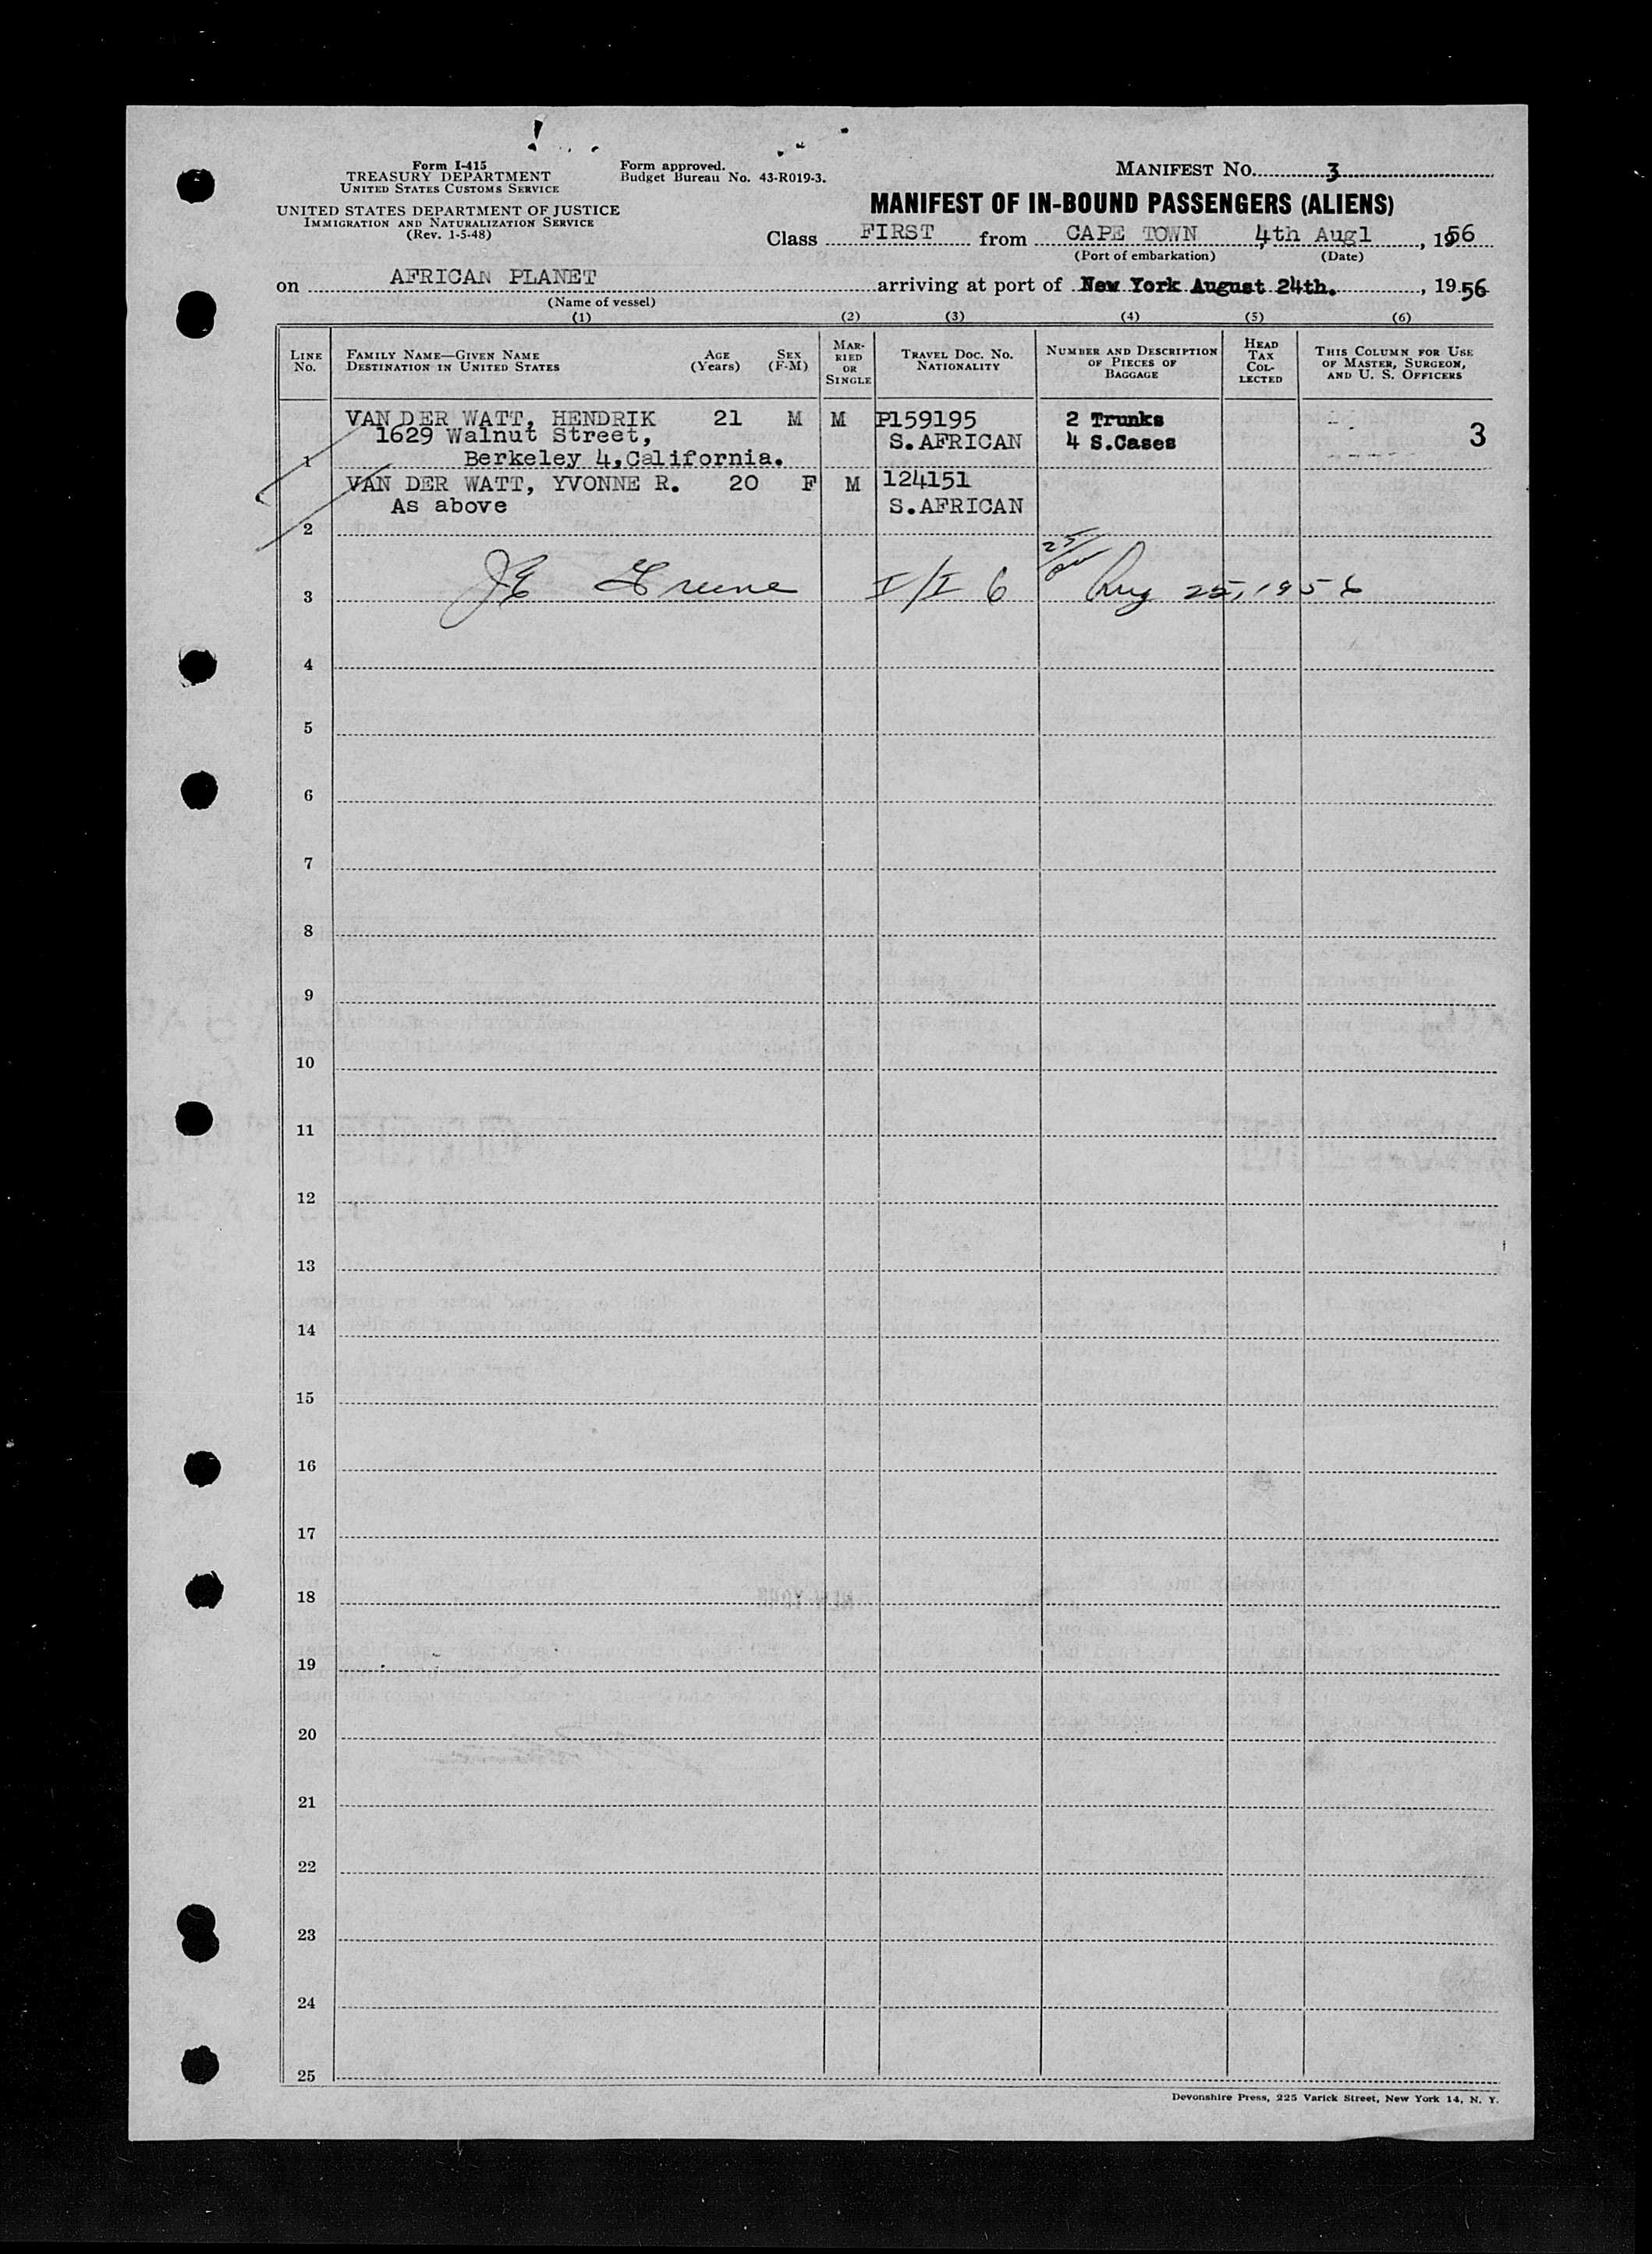 Form I-415
TREASURY DEPARTMENT
UNITED STATES CUSTOMS SERVICE
UNITED STATES DEPARTMENT OF JUSTICE
IMMIGRATION AND NATURALIZATION SERVICE
(Rev. 1-5-48)
Form approved.
Budget Bureau No. 43-R019-3.
MANIFEST NO. 3
MANIFEST OF IN-BOUND PASSENGERS (ALIENS)
Class FIRST from CAPE TOWN 4th Augl, 1956
(Port of embarkation) (Date)
on AFRICAN PLANET arriving at port of New York August 24th., 1956
(Name of vessel)
(1) (2) (3) (4) (5) (6)
LINE NO.
FAMILY NAME—GIVEN NAME
DESTINATION IN UNITED STATES
AGE (Years)
SEX (F-M)
MARRIED OR SINGLE
TRAVEL DOC. NO.
NATIONALITY
NUMBER AND DESCRIPTION OF PIECES OF BAGGAGE
HEAD TAX COLLECTED
THIS COLUMN FOR USE OF MASTER, SURGEON, AND U. S. OFFICERS
VAN DER WATT, HENDRIK 21 M M P159195 2 Trunks
1629 Walnut Street, S.AFRICAN 4 S.Cases 3
1 Berkeley 4, California.
VAN DER WATT, YVONNE R. 20 F M 124151
As above S.AFRICAN
2
3 JE Greene I/I 6 Aug 25, 1956
4
5
6
7
8
9
10
11
12
13
14
15
16
17
18
19
20
21
22
23
24
25
Devonshire Press, 225 Varick Street, New York 14, N. Y.